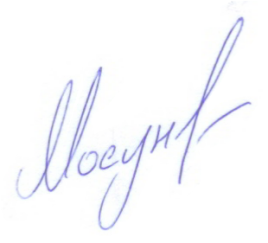 Мосунв